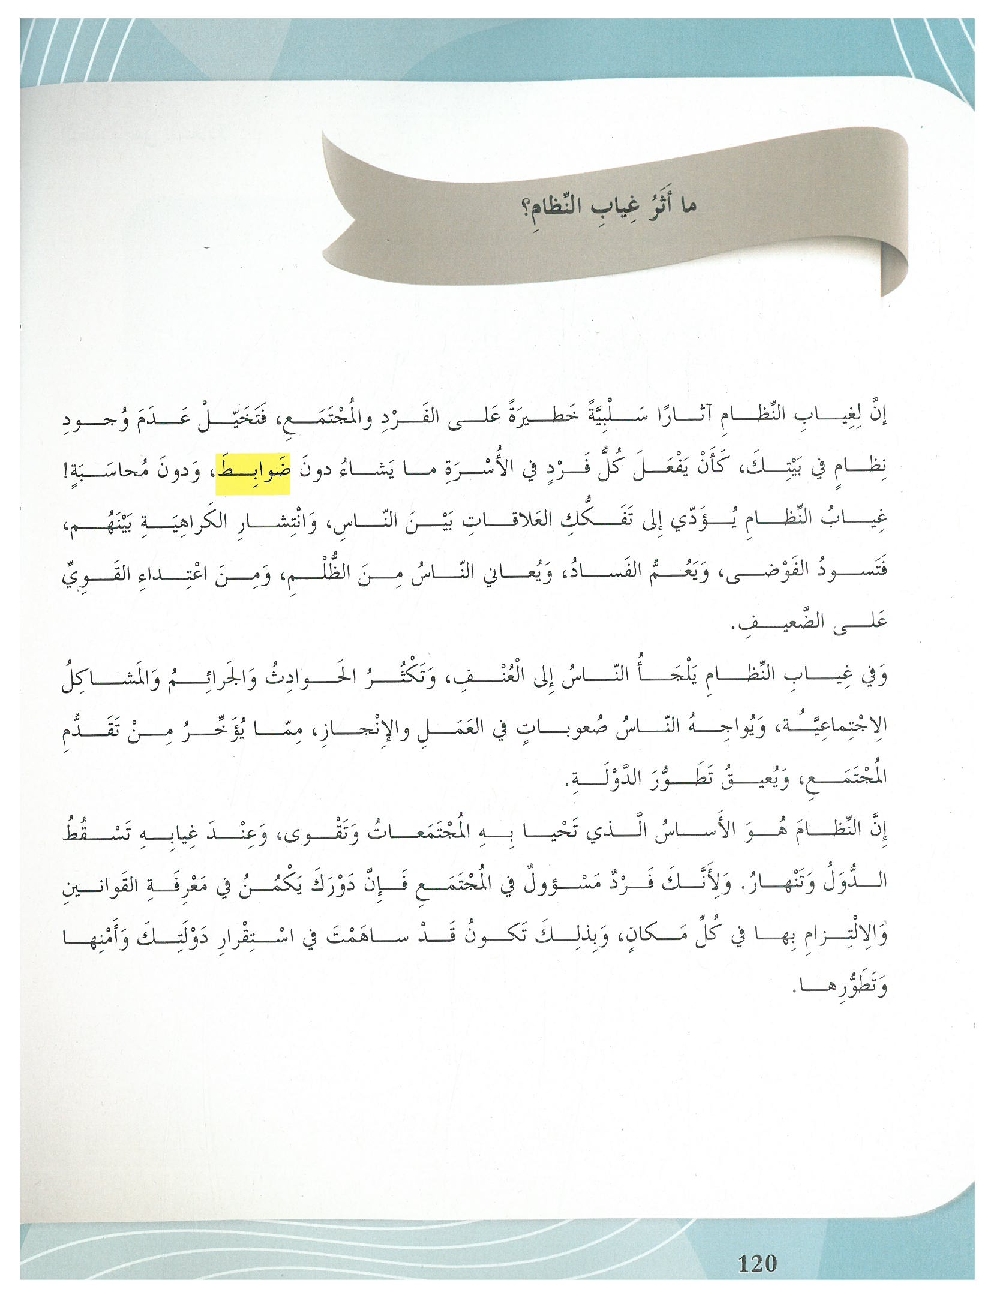 ما أَثَرُ غِيابِ النِّظامِ؟
إنَّ لِغِيابِ النِّظامِ آثارًا سَلْبِيَّةً خَطيرَةً عَلى الفَرْدِ والمُجْتَمَعِ، فَتَخَيّلْ عَدَمَ وُجودِ
نِظامٍ في بَيْتِكَ، كَأَنْ يَفْعَلَ كُلُّ فَرْدٍ في الأُسْرَةِ ما يَشاءُ دونَ ضَوابِطَ، وَدونَ مُحاسَبَةٍ!
غِيابُ النِّظامِ يُؤَدّي إلى تَفَكُّكِ العَلاقاتِ بَيْنَ النّاسِ، وَانْتِشارِ الكَراهِيَةِ بَيْنَهُم،
فَتَسودُ الفَوْضى، وَيَعُمُّ الفَسادُ، وَيُعاني النّاسُ مِنَ الظُّلْمِ، وَمِنَ اعْتِداءِ القَوِيِّ
عَلى الضَّعيفِ.
وَفي غِيابِ النِّظامِ يَلْجَأُ النّاسُ إلى الْعُنْفِ، وَتَكْثُرُ الحَوادِثُ وَالجَرائِمُ وَالمَشاكِلُ
الاِجْتِماعِيَّةُ، وَيُواجِهُ النّاسُ صُعوباتٍ في العَمَلِ والإِنْجازِ، مِمّا يُؤَخِّرُ مِنْ تَقَدُّمِ
المُجْتَمَعِ، وَيُعيقُ تَطَوُّرَ الدَّوْلَةِ.
إنَّ النِّظامَ هُوَ الأَساسُ الَّذي تَحْيا بِهِ المُجْتَمَعاتُ وَتَقْوى، وَعِنْدَ غِيابِهِ تَسْقُطُ
الدُّوَلُ وَتَنْهارُ. وَلِأَنَّكَ فَرْدٌ مَسْؤولٌ في المُجْتَمَعِ فَإِنَّ دَوْرَكَ يَكْمُنُ في مَعْرِفَةِ القَوانينِ
وَالِالْتِزامِ بِها في كُلِّ مَكانٍ، وَبِذلِكَ تَكونُ قَدْ ساهَمْتَ في اسْتِقْرارِ دَوْلَتِكَ وَأَمْنِها
وَتَطَوُّرِها.
120